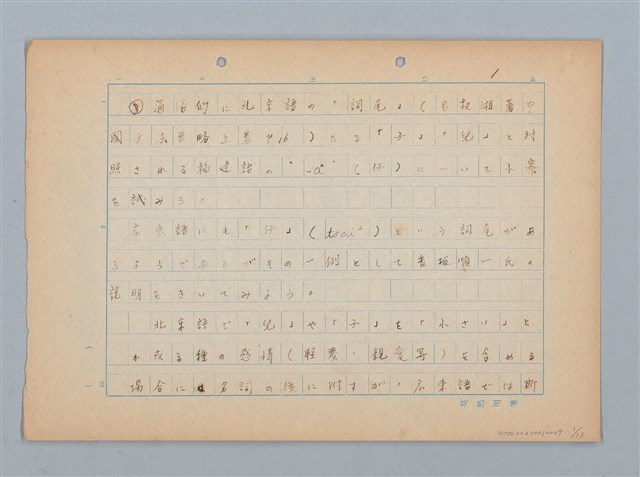 1
① 通俗的に北京語の「詞尾」(呂叔湘著中
國文法要略上巻P16)たる「子」「兒」と対
照される福建語の"-a²"(仔)について小察
を試みる。
広東語にも「仔」(tsai²)という詞尾があ
るようであるがその一例として香坂順一氏の
説明をきいてみよう。
北京語で「兒」や「子」を「小さい」と
か或る種の感情(軽蔑・親愛等)を含める
場合には名詞の後に附すが、広東語では斯